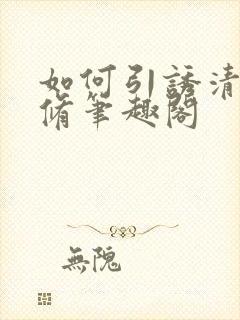 如何引誘清
脩筆趣閣
無隗